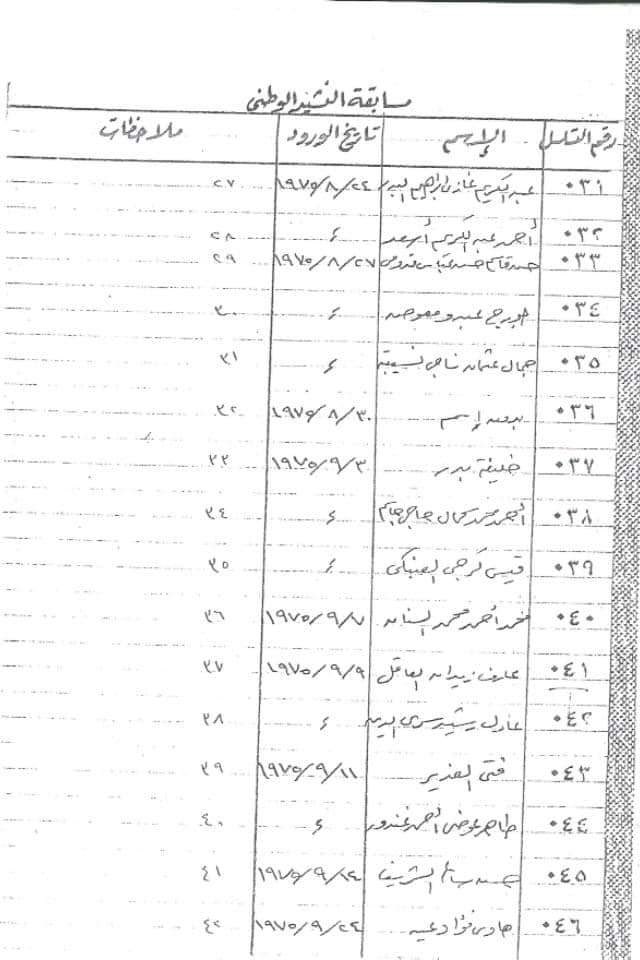 مسابقة النشيد الوطني
رقم التسلسل الإسم تاريخ الورود ملاحظات
٠٣١ عبد الكريم غازي ابراهيم ١٩٧٥/٨/٢٤ ٢٧
٠٣٢ أحمد عبد الكريم أسعد ٤ ٢٨
٠٣٣ حسن قاسم حسن عباس ١٩٧٥/٨/٢٧ ٢٩
٠٣٤ جورج عبدو معوض ٤ ٣٠
٠٣٥ جمال عثمان ناجي نسيبة ٤ ٣١
٠٣٦ بدون إسم ١٩٧٥/٨/٣٠ ٣٢
٠٣٧ خليفة بدر ١٩٧٥/٩/٣ ٣٣
٠٣٨ أحمد محمد كمال حاجي ٤ ٣٤
٠٣٩ قيس كرجي العنبكي ٤ ٣٥
٠٤٠ أحمد محمد ١٩٧٥/٩/٧ ٣٦
٠٤١ عارف زيدان العاقل ١٩٧٥/٩/٩ ٣٧
٠٤٢ عادل رشيد سري الدين ٤ ٣٨
٠٤٣ فتى الغدير ١٩٧٥/٩/١١ ٣٩
٠٤٤ طاهر عوض أحمد غندور ٤ ٤٠
٠٤٥ حسن سالم الشريف ١٩٧٥/٩/١٤ ٤١
٠٤٦ هادي فؤاد ١٩٧٥/٩/٢٤ ٤٢